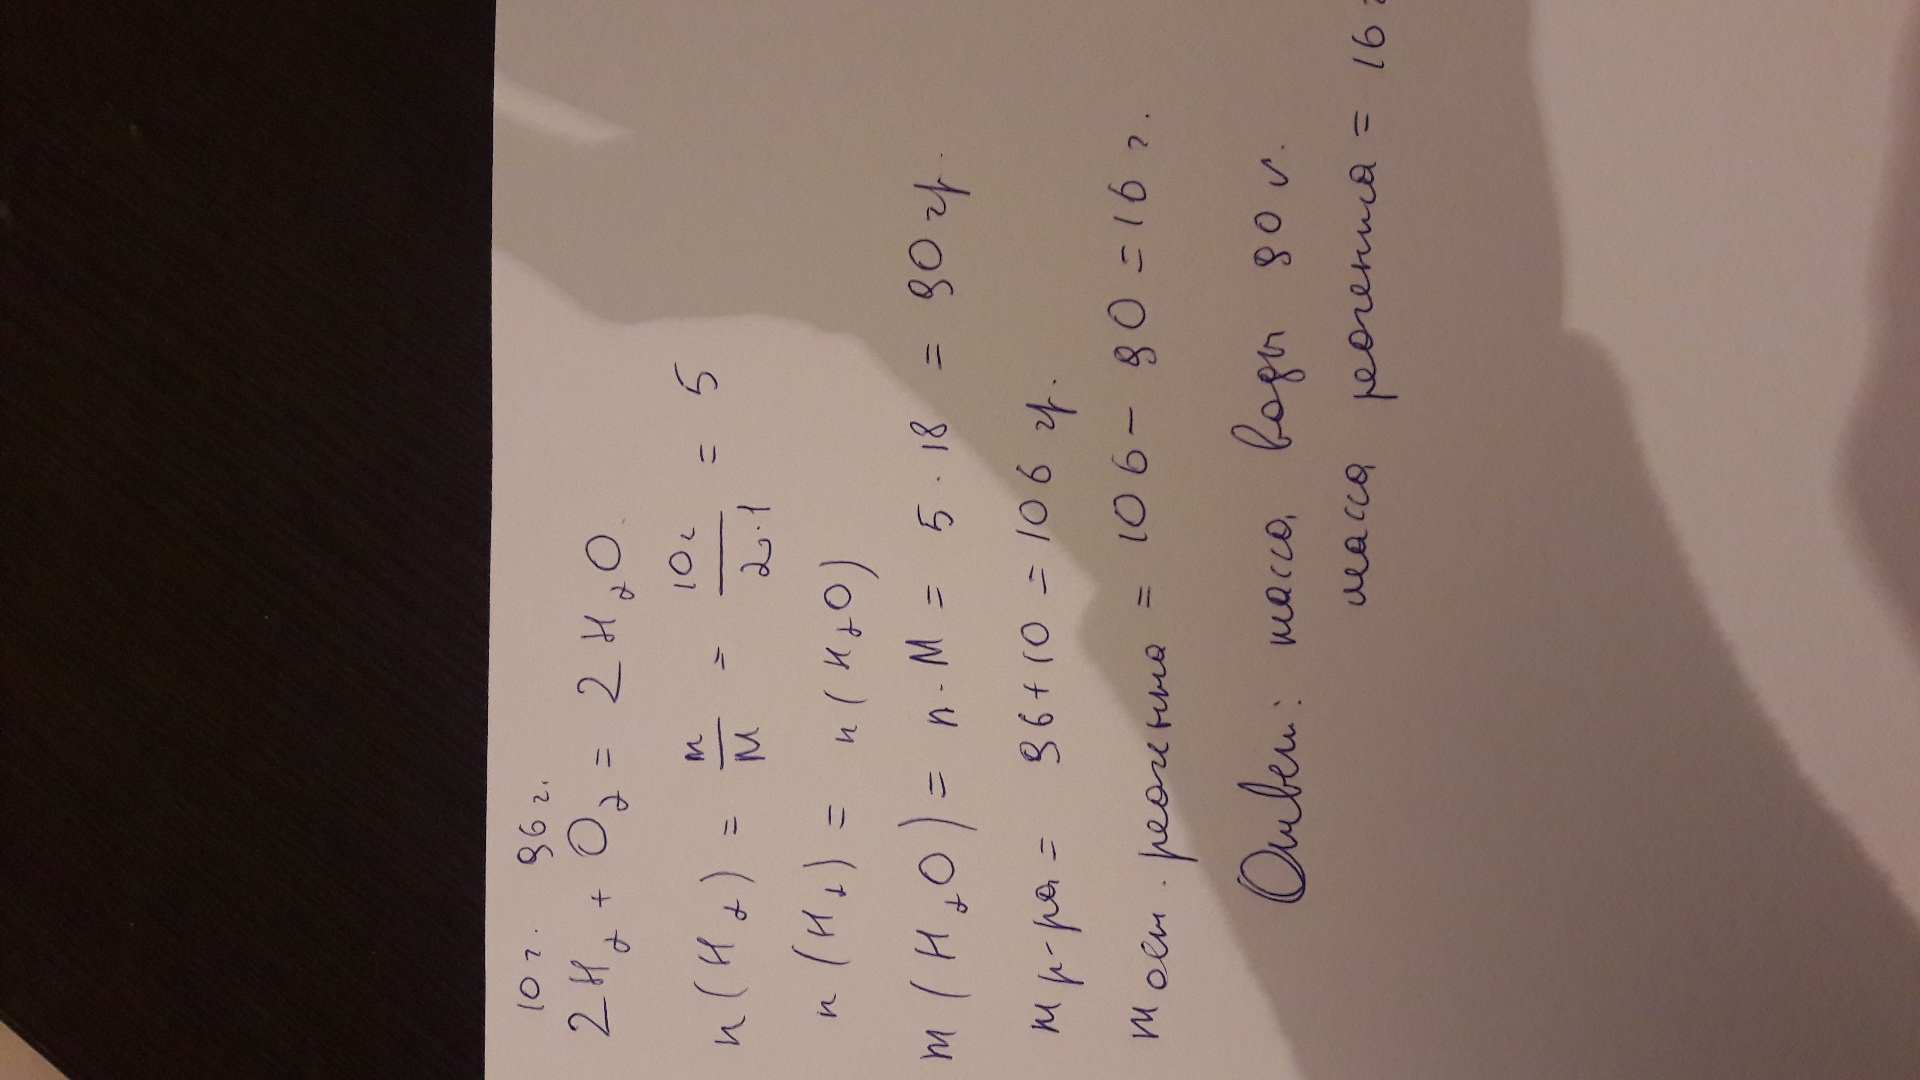 10 г. 96 г.
2H₂ + O₂ = 2H₂O
n(H₂) = m/M = 10г/2·1 = 5
n(H₂) = n(H₂O)
m(H₂O) = n·M = 5·18 = 90 гр.
m р-ра = 96+10 = 106 гр.
m ост. реагента = 106 - 90 = 16 г.
Ответ: масса воды 90 г.
масса реагента = 16 г